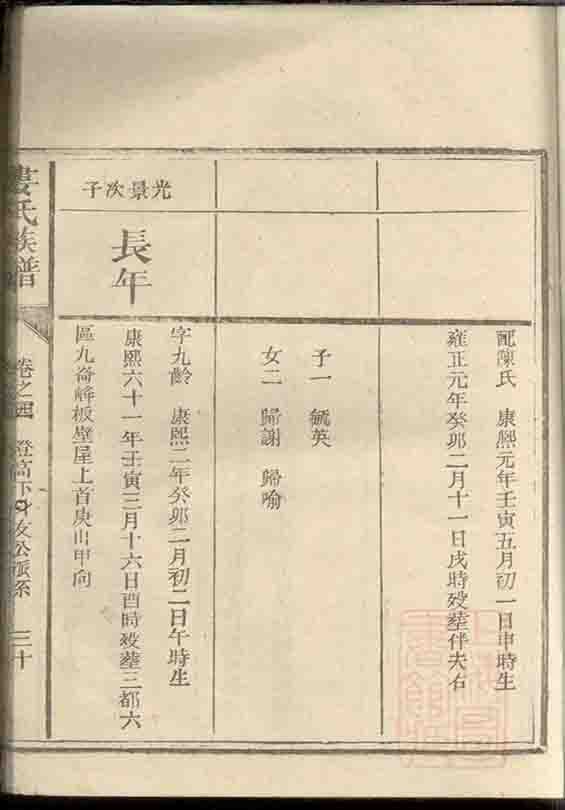 配陳氏 康熙元年壬寅五月初一日申時生
雍正元年癸卯二月十一日戌時歿塟伴夫右
子一 毓英
女二 歸謝 歸喻
光景次子
長年
字九齡 康熙二年癸卯二月初二日午時生
康熙六十一年壬寅三月十六日酉時歿塟三都六
區九崙峰板壁屋上首庚山甲向
婁氏族譜
卷之四 登高下 友公派系 三十